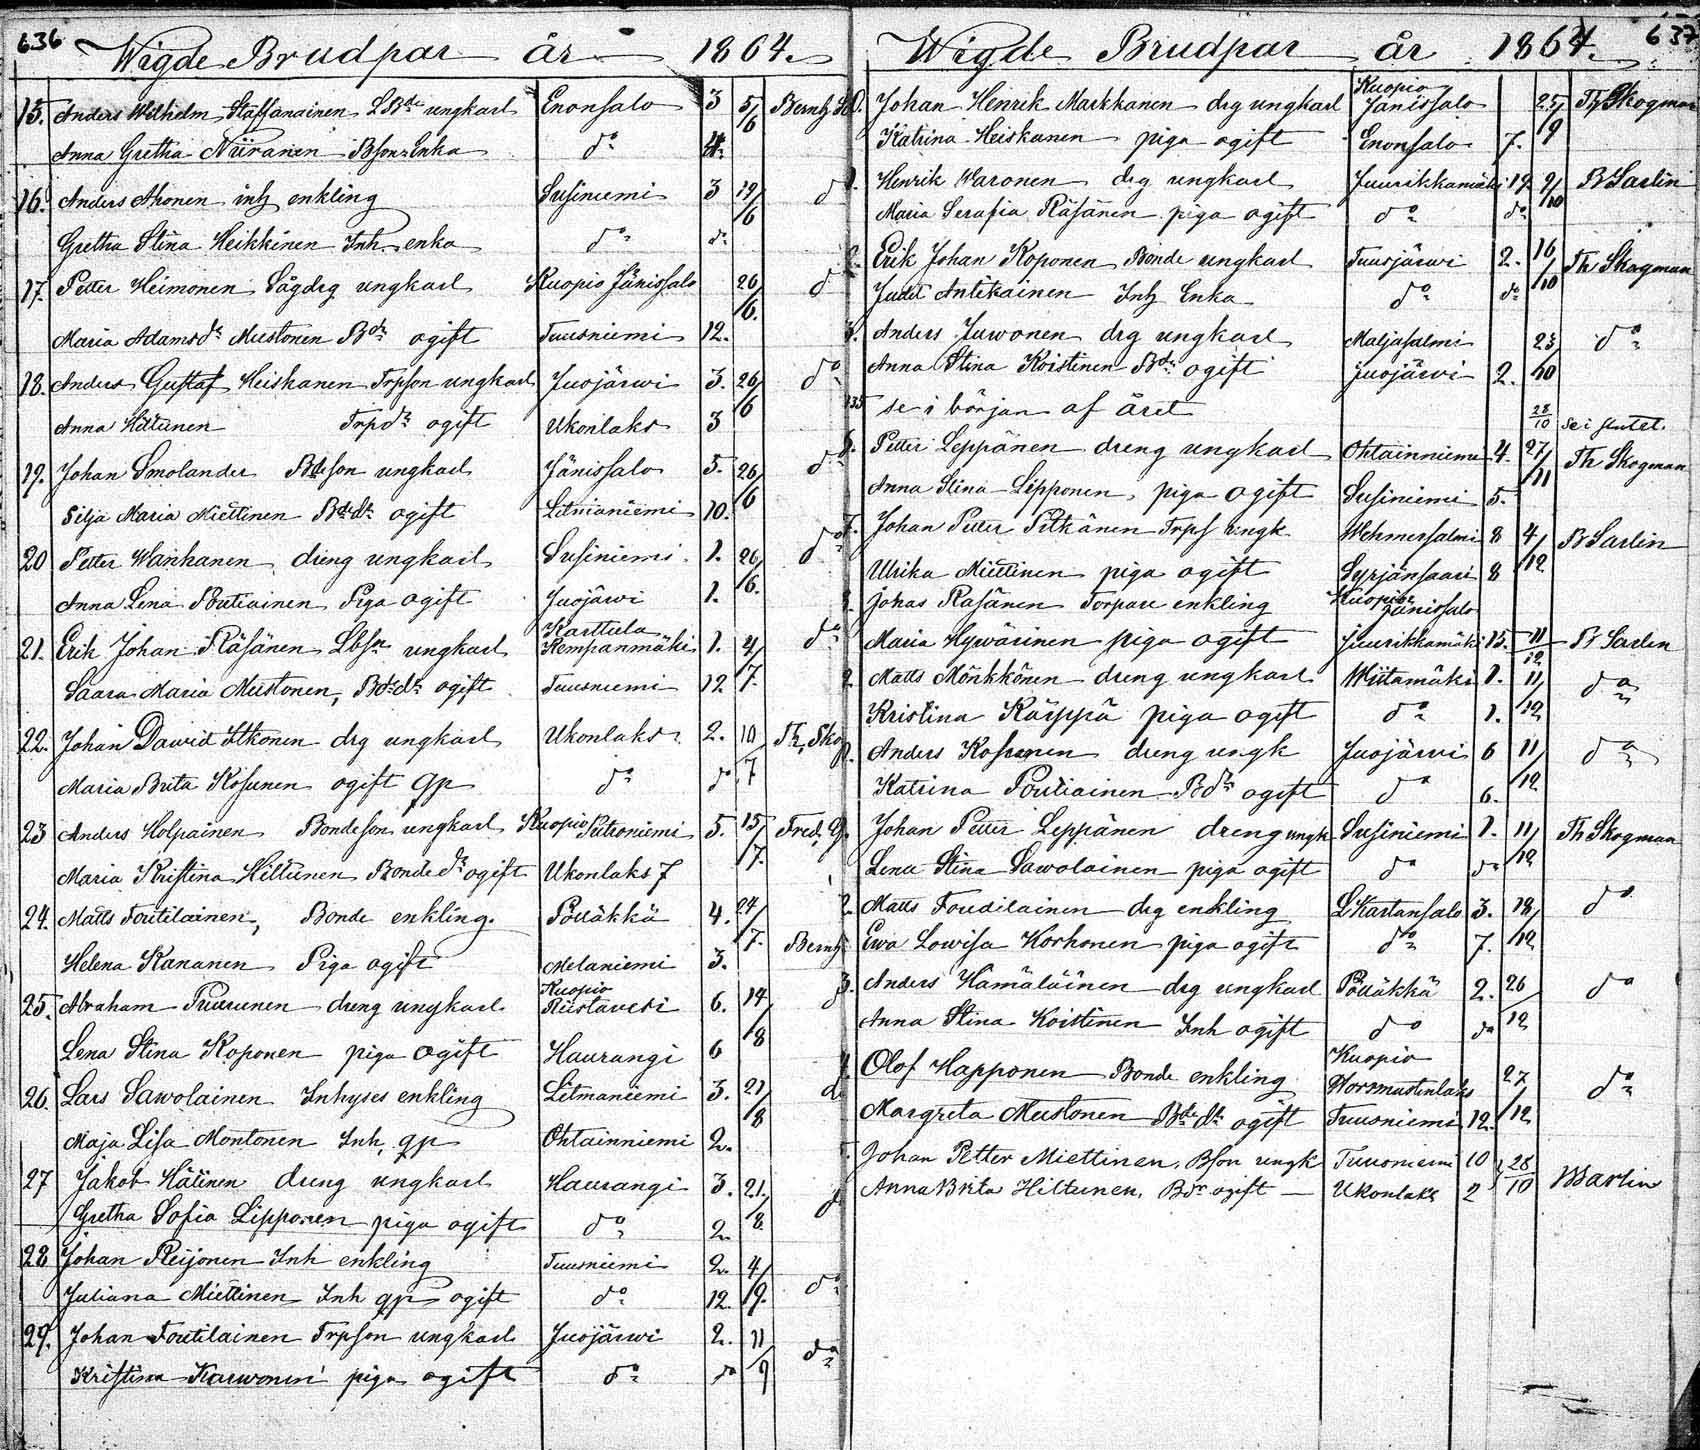 636
Wigde Brudpar år 1864.
15. Anders Wilhelm Staffanainen LBde ungkarl Enonsalo 3 5/6 Berntz
Anna Gretha Niiranen Bson Enka do 4.
16. Anders Ahonen inh enkling Susiniemi 3 19/6 do
Gretha Stina Heikkinen Inh. enka do do
17. Petter Heimonen Sågdrg ungkarl Kuopio Jänissalo 26/6. do
Maria Adamsdr Mustonen Bdr ogift Tuusniemi 12.
18. Anders Gustaf Heiskanen Trpson ungkarl Juojärwi 3. 26/6 do
Anna Hiltunen Trpdr ogift Ukonlaks 3
19. Johan Smolander Bdeson ungkarl Jänissalo 5. 26/6 do
Silja Maria Miettinen Bdedr ogift Litmaniemi 10.
20 Petter Wanhanen dreng ungkarl Susiniemi 1. 26/6. do
Anna Lena Poutiainen Piga ogift Juojärwi 1.
21. Erik Johan Räsänen Lbsn ungkarl Karttula Kempanmäki 1. 4/7. do
Saara Maria Mustonen, Bdedr ogift Tuusniemi 12
22. Johan Dawid Itkonen drg ungkarl Ukonlaks 2. 10/7 Th. Sko
Maria Brita Kosunen ogift qp do do
23 Anders Holpainen Bondeson ungkarl Kuopio Petroniemi 5. 15/7. Fred.
Maria Kristina Hiltunen Bondedr ogift Ukonlaks 7
24. Matts Toutilainen, Bonde enkling. Pölläkkä 4. 24/7. Berntz
Helena Kananen Piga ogift Melaniemi 3.
25. Abraham Truunen dreng ungkarl Kuopio Riistavesi 6. 14/8 do
Lena Stina Koponen piga ogift Haurangi 6
26. Lars Sawolainen Inhyses enkling Litmaniemi 3. 21/8 do
Maja Lisa Montonen Inh, qp Ohtainniemi 2.
27 Jakob Hätinen dreng ungkarl Haurangi 3. 21./8. do
Gretha Sofia Lipponen piga ogift do 2.
28 Johan Reijonen Inh enkling Tuusniemi 2. 4/9. do
Juliana Miettinen Inh qp ogift do 12.
29. Johan Toutilainen Trpson ungkarl Juojärwi 2. 11/9 do
Kristina Karwonen piga ogift do do
637
Wigde Brudpar år 1864.
0. Johan Henrik Markkanen drg ungkarl Kuopio Jänissalo 25/9 Th Skogman
Katrina Heiskanen piga ogift Enonsalo 7.
1. Henrik Waronen drg ungkarl Juurikkamäki 19. 2/10 B Sarlin
Maria Serafia Räsänen piga ogift do do
2. Erik Johan Koponen Bonde ungkarl Tuusjärwi 2. 16/10 Th Skogman
Judit Antikainen Inh Enka do do
3. Anders Juwonen drg ungkarl Maljasalmi 23/10 do
Anna Stina Koistinen Bdr ogift Juojärwi 2.
135 se i början af året 28/10 se i slutet.
6. Petter Leppänen dreng ungkarl Ohtainniemi 4. 27/11 Th Skogman
Anna Stina Lipponen, piga ogift Susiniemi 5.
7. Johan Petter Pitkänen Trps ungk. Wehmersalmi 8 4/12 B Sarlin
Ulrika Miettinen piga ogift Syrjänsaari 8
8. Johas Räsänen Torpare enkling Kuopio Jänissalo
Maria Hywärinen piga ogift Juurikkamäki 15. 11/12 B Sarlin
9. Matts Mönkkönen dreng ungkarl Wiitamäki 1. 11/12 do
Kristina Käyppä piga ogift do 1.
0. Anders Kosunen dreng ungk Juojärwi 6 11/12 do
Katrina Poutiainen Bdr ogift do 6.
Johan Petter Leppänen dreng ungk Susiniemi 1. 11/12 Th Skogman
Lena Stina Sawolainen piga ogift do do
2. Matts Toudilainen drg enkling LKartansalo 3. 18/12 do
Ewa Lowisa Korhonen piga ogift do 7.
3. Anders Hämäläinen drg ungkarl Pölläkkä 2. 26/12 do
Anna Stina Koistinen Inh ogift do do
4. Olof Happonen Bonde enkling Kuopio Worsmustenlaks 27/12 do
Margreta Mustonen Bdedr ogift Tuusniemi 12.
5. Johan Petter Miettinen, Bson ungk Tuusniemi 10 28/10 BSarlin
Anna Brita Hiltunen, Bdr ogift Ukonlaks 2